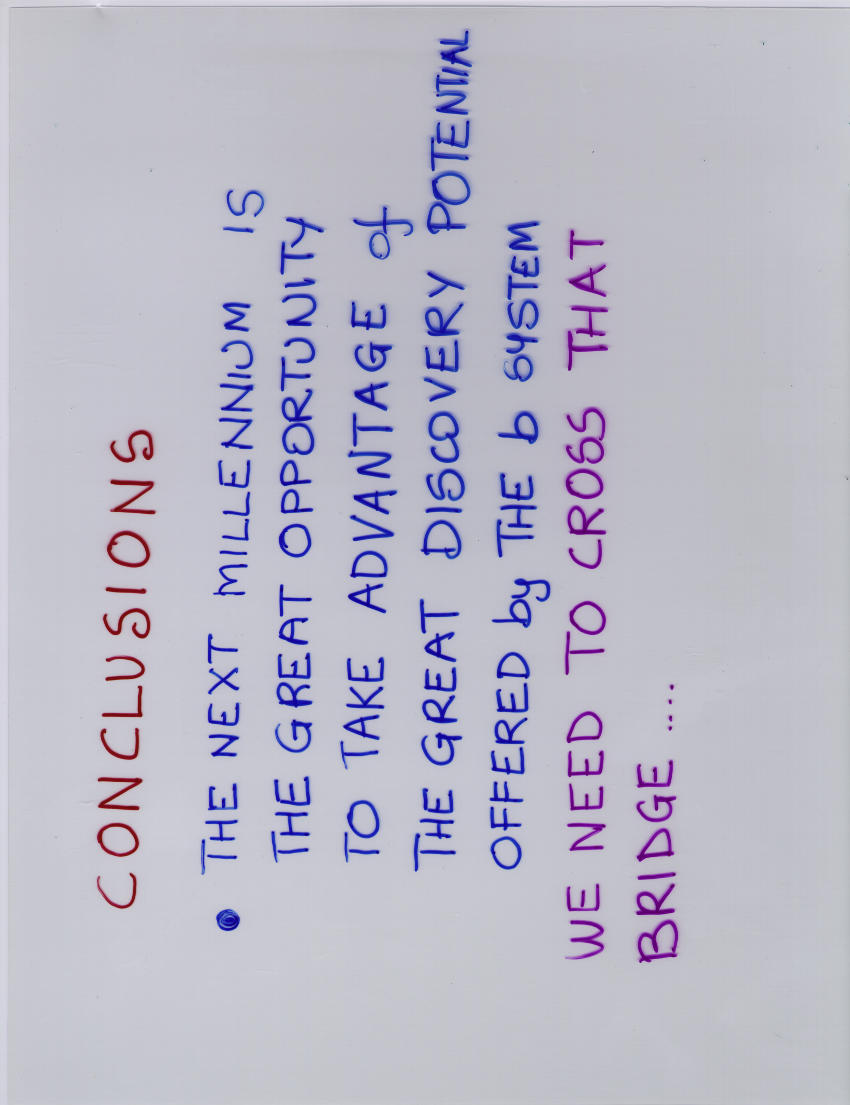 CONCLUSIONS
• THE NEXT MILLENNIUM IS
THE GREAT OPPORTUNITY
TO TAKE ADVANTAGE of
THE GREAT DISCOVERY POTENTIAL
OFFERED by THE b SYSTEM
WE NEED TO CROSS THAT
BRIDGE ....